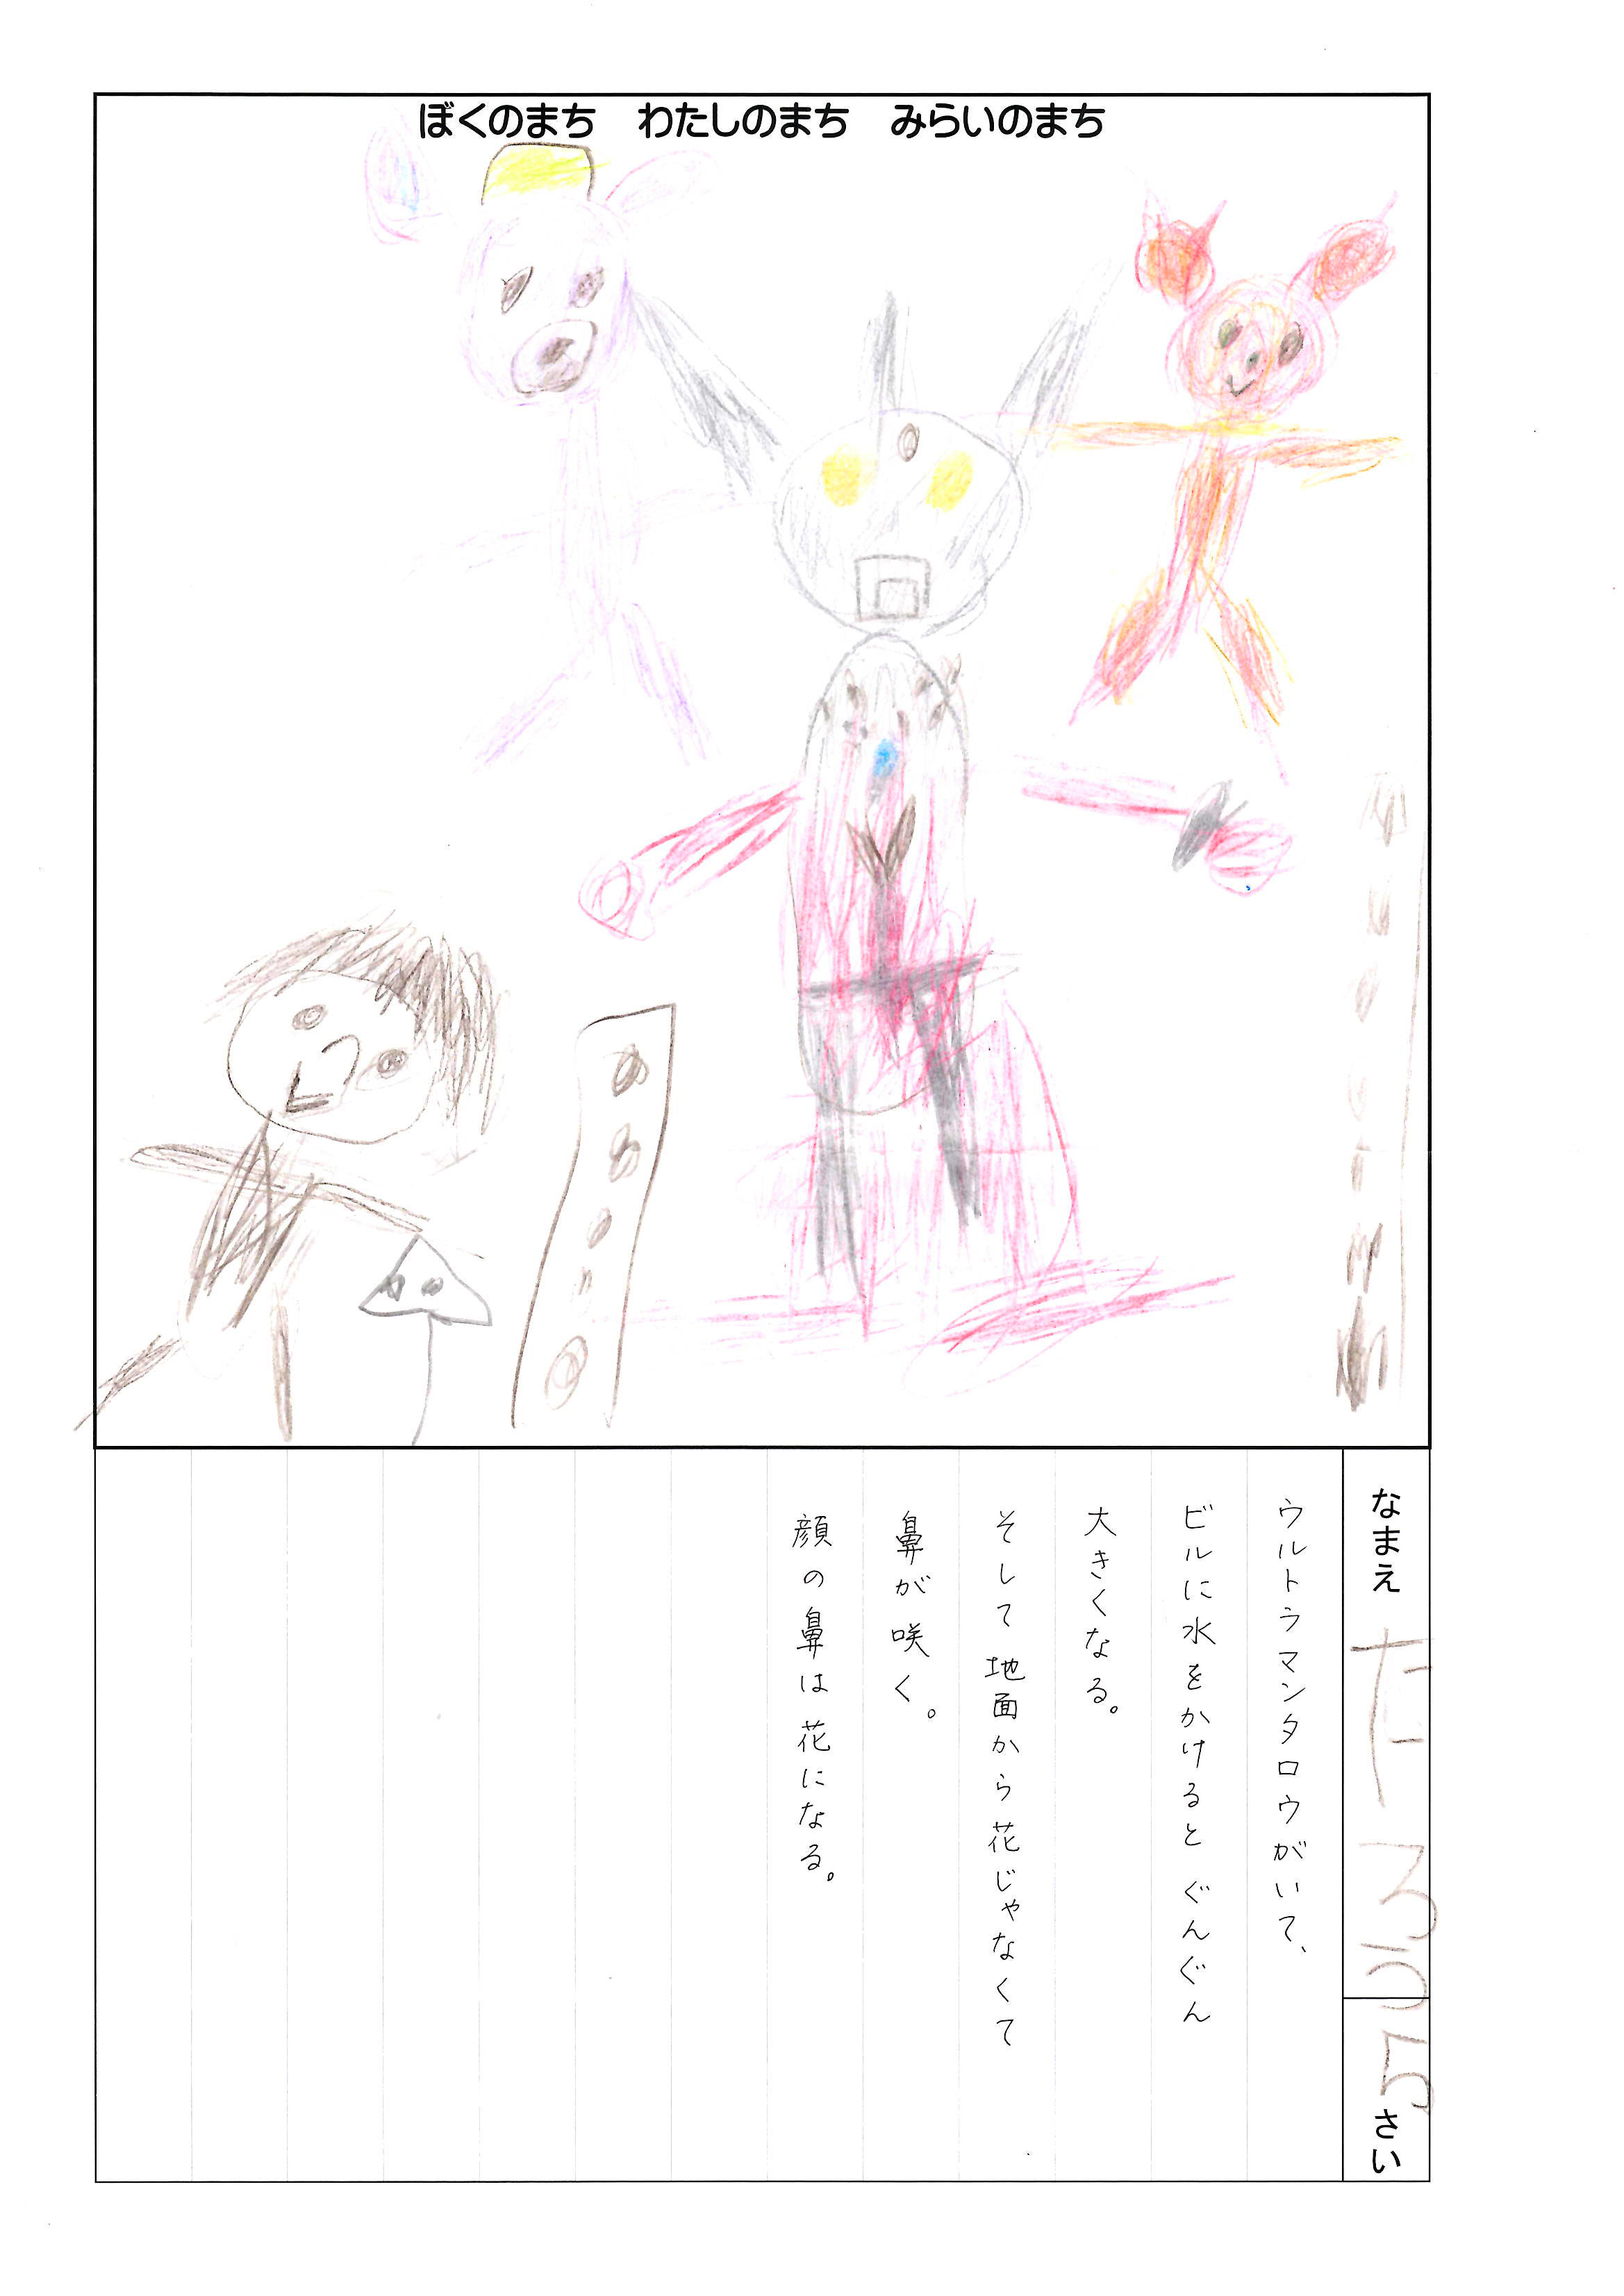 ぼくのまち　わたしのまち　みらいのまち
なまえ
たろう
5さい
ウルトラマンタロウがいて、
ビルに水をかけるとぐんぐん
大きくなる。
そして地面から花じゃなくて
鼻が咲く。
顔の鼻は花になる。